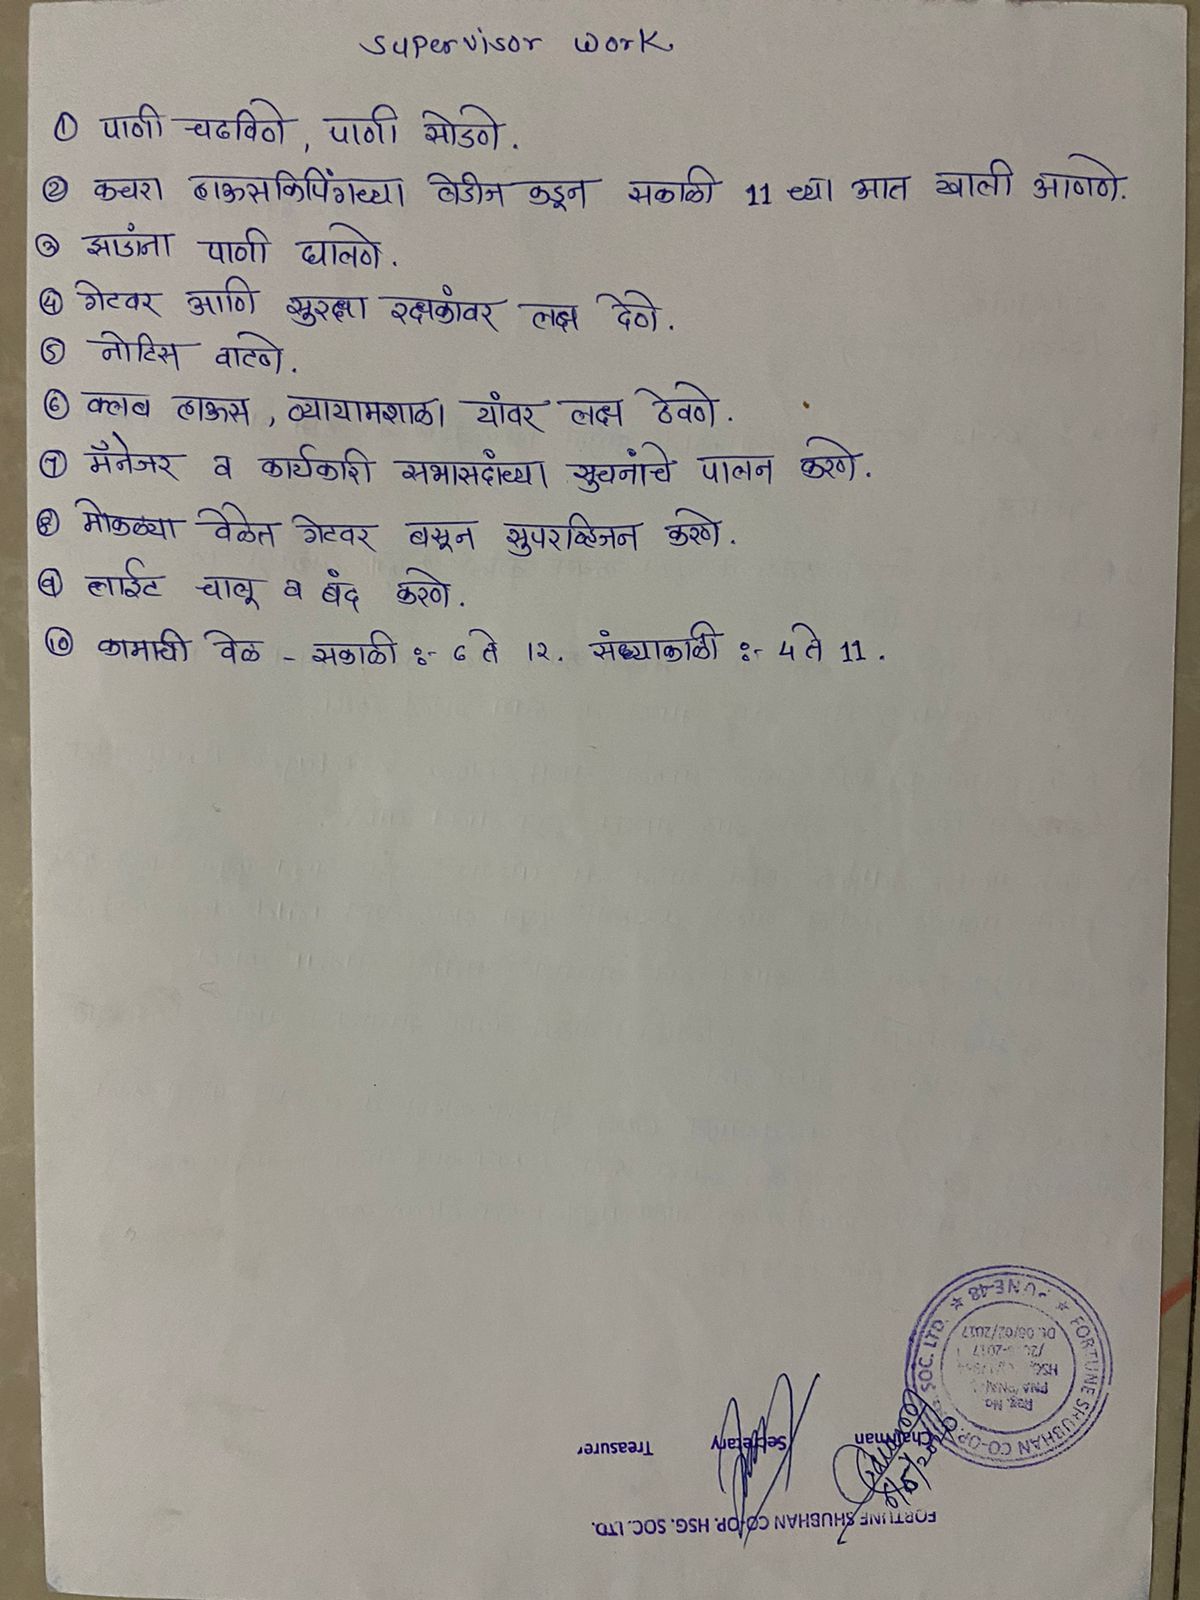 Supervisor work
① पाणी चढविणे, पाणी सोडणे.
② कचरा हाऊसकिपिंगच्या लेडीज कडून सकाळी 11 च्या आत खाली आणणे.
③ झाडांना पाणी घालणे.
④ गेटवर आणि सुरक्षा रक्षकांवर लक्ष देणे.
⑤ नोटिस वाटणे.
⑥ क्लब हाऊस, व्यायामशाळा यांवर लक्ष ठेवणे.
⑦ मॅनेजर व कार्यकारी सभासदांच्या सुचनांचे पालन करणे.
⑧ मोकळ्या वेळेत गेटवर बसून सुपरव्हिजन करणे.
⑨ लाईट चालू व बंद करणे.
⑩ कामाची वेळ - सकाळी :- ६ ते १२. संध्याकाळी :- 4 ते 11.
FORTUNE SHUBHAN CO-OP. HSG. SOC. LTD.
Chairman Secretary Treasurer
FORTUNE SHUBHAN CO-OP. SOC. LTD. ★ PUNE-48 ★
Reg. No.
HSG.
Dt. 06/02/2017